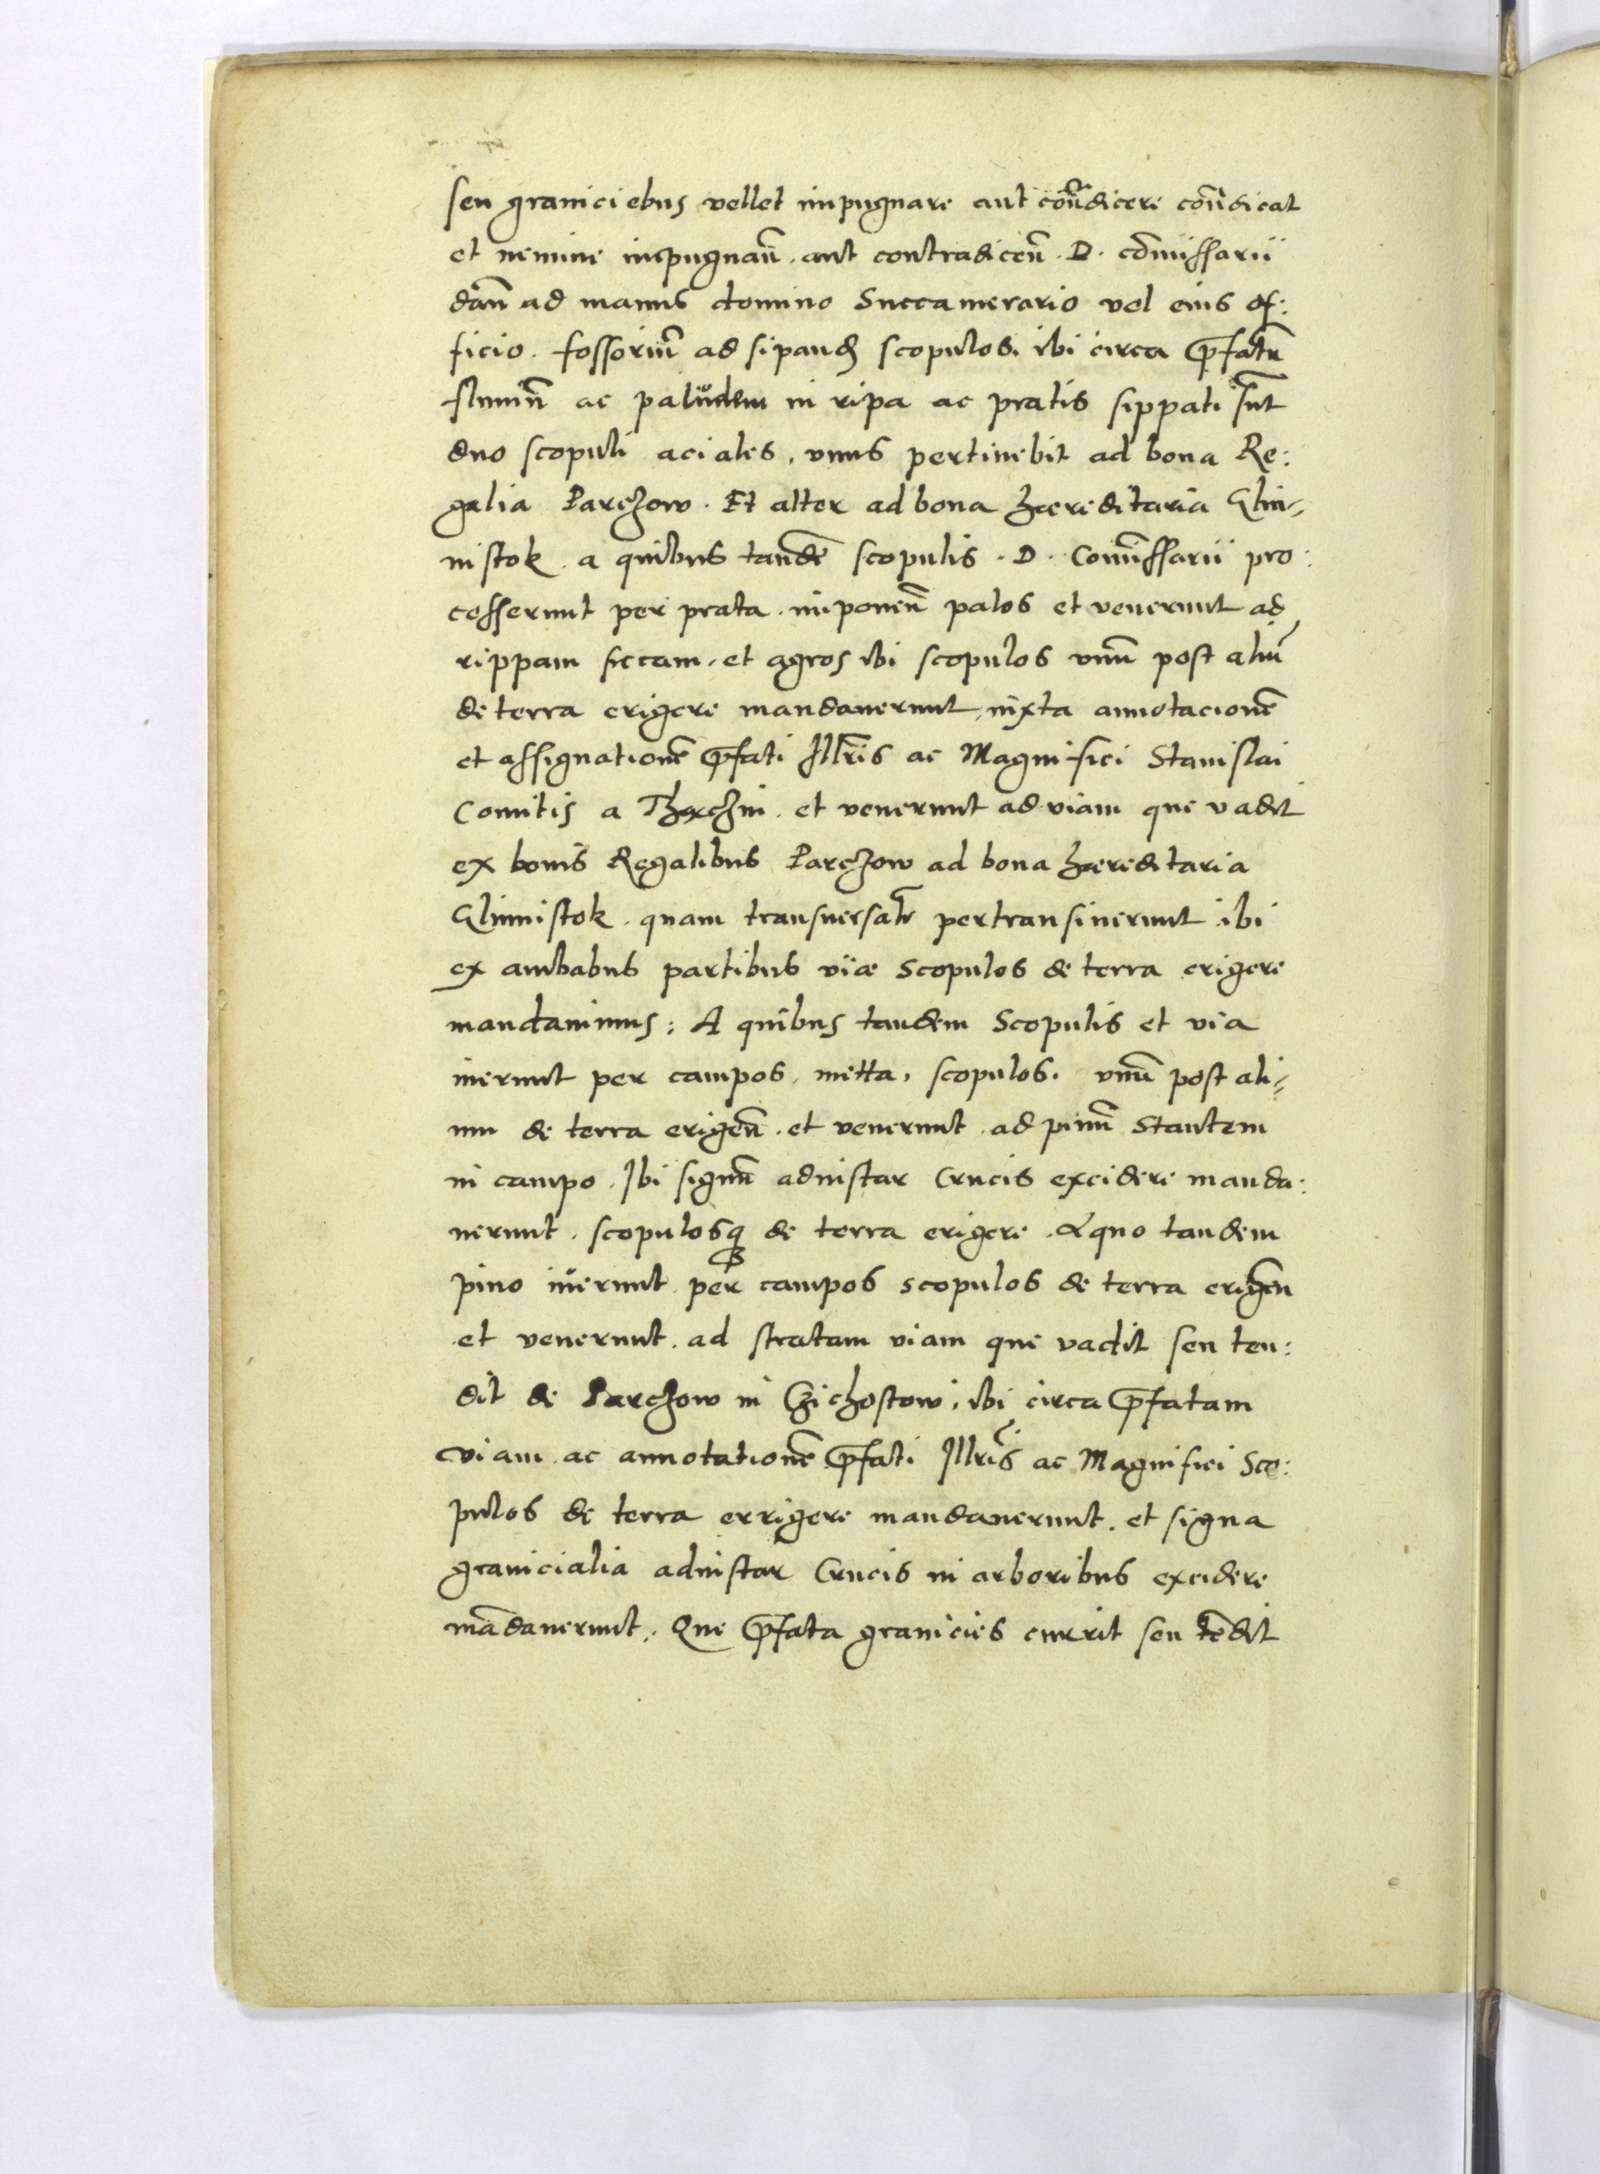 seu graniciebus vellet impugnare aut cōn̄dicere cōn̄dicat
et nemine impugnan̄. aut contradicen̄. D. cōmissarii
dan̄ ad manus domino Succamerario vel eius of:
ficio. fossoriū ad sipand scopulos. ibi circa p̄fatū
flumēn ac palŭdem in ripa ac pratis sippati sūt
duo scopuli aciales, vnus pertinebit ad bona Re:
galia Parczow. Et alter ad bona hæreditaria Glin=
nistok. a quibus tandē scopulis. D. Comīssarii pro:
cesserunt per prata. imponen̄ palos et venerunt ad
rippam siccam, et agros ibi scopulos vnū post aliū
de terra erigere mandauerunt, iuxta annotacionē
et assignationē p̄fati Illr̄is ac Magnifici Stanislai
Comitis a Thęczin. et venerunt ad viam que vadit
ex bonis Regalibus Parczow ad bona hæreditaria
Glinnistok. quam transuersalr̄ pertransiuerunt ibi
ex ambabus partibus viæ scopulos de terra erigere
mandauimus: A quibus tandem Scopulis et via
iuerunt per campos, metta, scopulos. vnū post ali=
um de terra erigen̄. et venerunt. ad pinū stantem
in campo. Ibi signū adinstar Crucis excidere manda:
uerunt. scopulosq de terra erigere. A quo tandem
pino iŭerunt per campos scopulos de terra erigēn
et venerunt. ad stratam viam que vadit seu ten:
dit de Parczow in Czichostow, ibi circa p̄fatam
viam ac annotationē p̄fati Illris ac Magnifici Sco:
pulos de terra errigere mandauerunt. et signa
granicialia adinstar Crucis in arboribus excidere
mādauerunt. Que p̄fata granicies currit seu tēdit